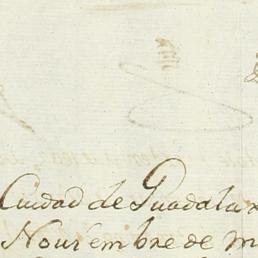 Ciudad de Guadalax
Nouiembre de m